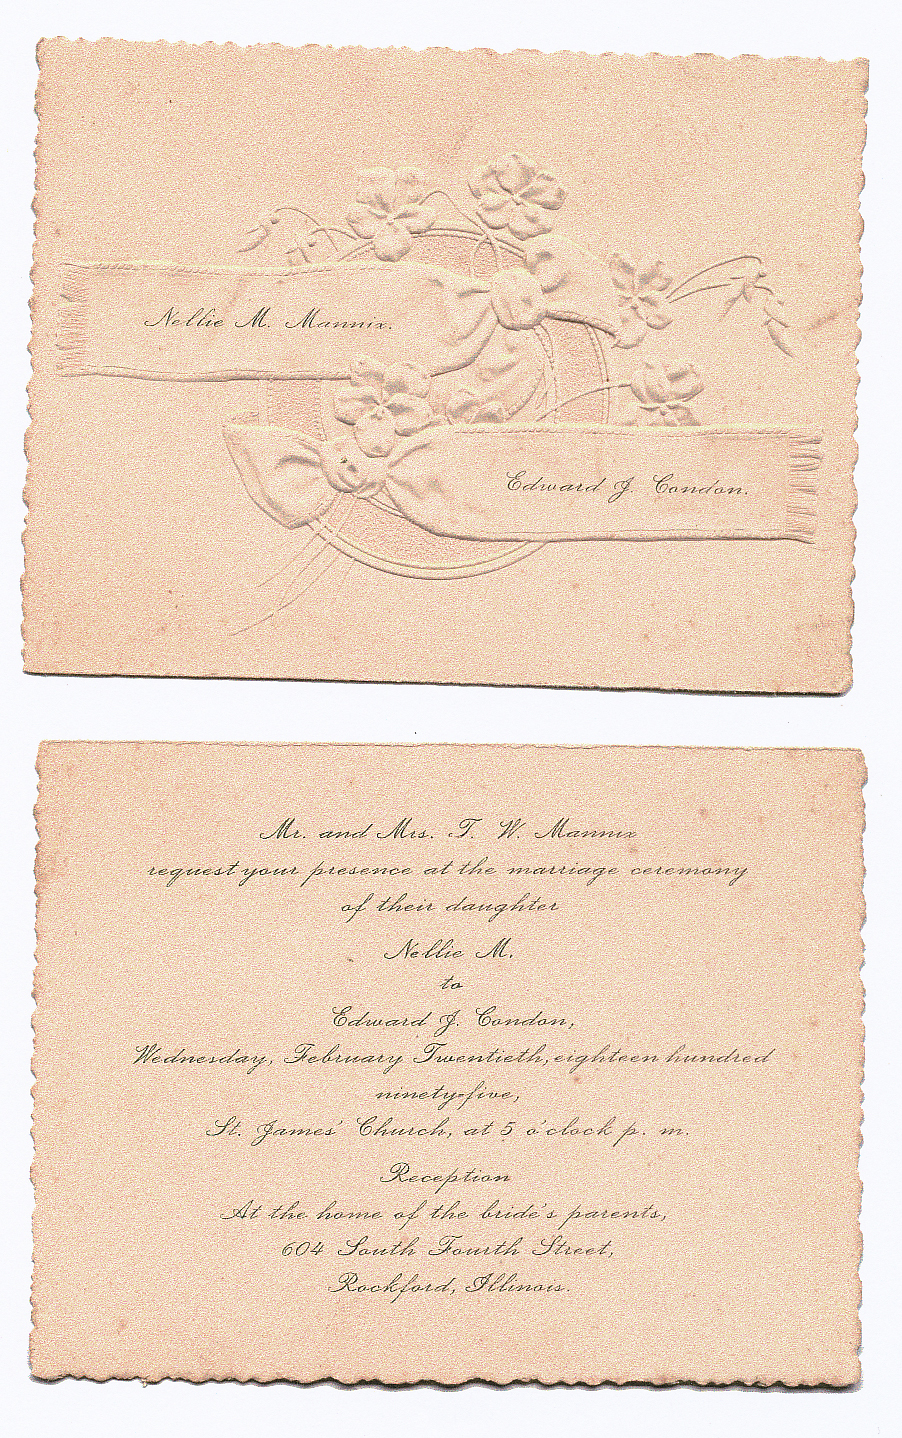 Nellie M. Mannix.
Edward J. Condon.
Mr. and Mrs. T. W. Mannix
request your presence at the marriage ceremony
of their daughter
Nellie M.
to
Edward J. Condon,
Wednesday, February Twentieth, eighteen hundred
ninety-five,
St. James' Church, at 5 o'clock p. m.
Reception
At the home of the bride's parents,
604 South Fourth Street,
Rockford, Illinois.